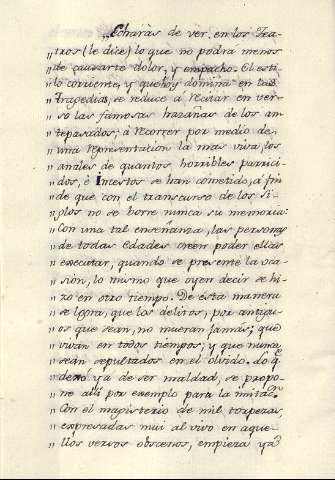 „Echarás de ver en los Tea-
„ tros (le dice) lo que no podrá menos
„ de causarte dolor, y empacho. El esti-
„ lo corriente, y que hoy domina en las
„ Tragedias, se reduce à recitar en ver-
„ so las famosas hazañas de los an-
„ tepasados; à recorrer por medio de
„ una representacion la mas viva, los
„ anales de quantos horribles parrici-
„ dos, è Incestos se han cometido, à fin
„ de que con el transcurso de los Si-
„ glos no se borre nunca su memoria.
„ Con una tal enseñanza, las personas
„ de todas edades creen poder ellas
„ executar, quando se presente la oca-
„ sion, lo mismo que oyen decir se hi-
„ zo en otro tiempo. De esta manera
„ se logra, que los delitos, por antigu-
„ os que sean, no mueran jamàs; que
„ vivan en todos tiempos; y que nunca
„ sean sepultados en el olvido. Lo q.e
„ dexó ya de ser maldad, se propo-
„ ne allí por exemplo para la imitac.on
„ Con el magisterio de mil torpezas,
„ expresadas mui al vivo en aque-
„ llos versos obscenos, empieza ya